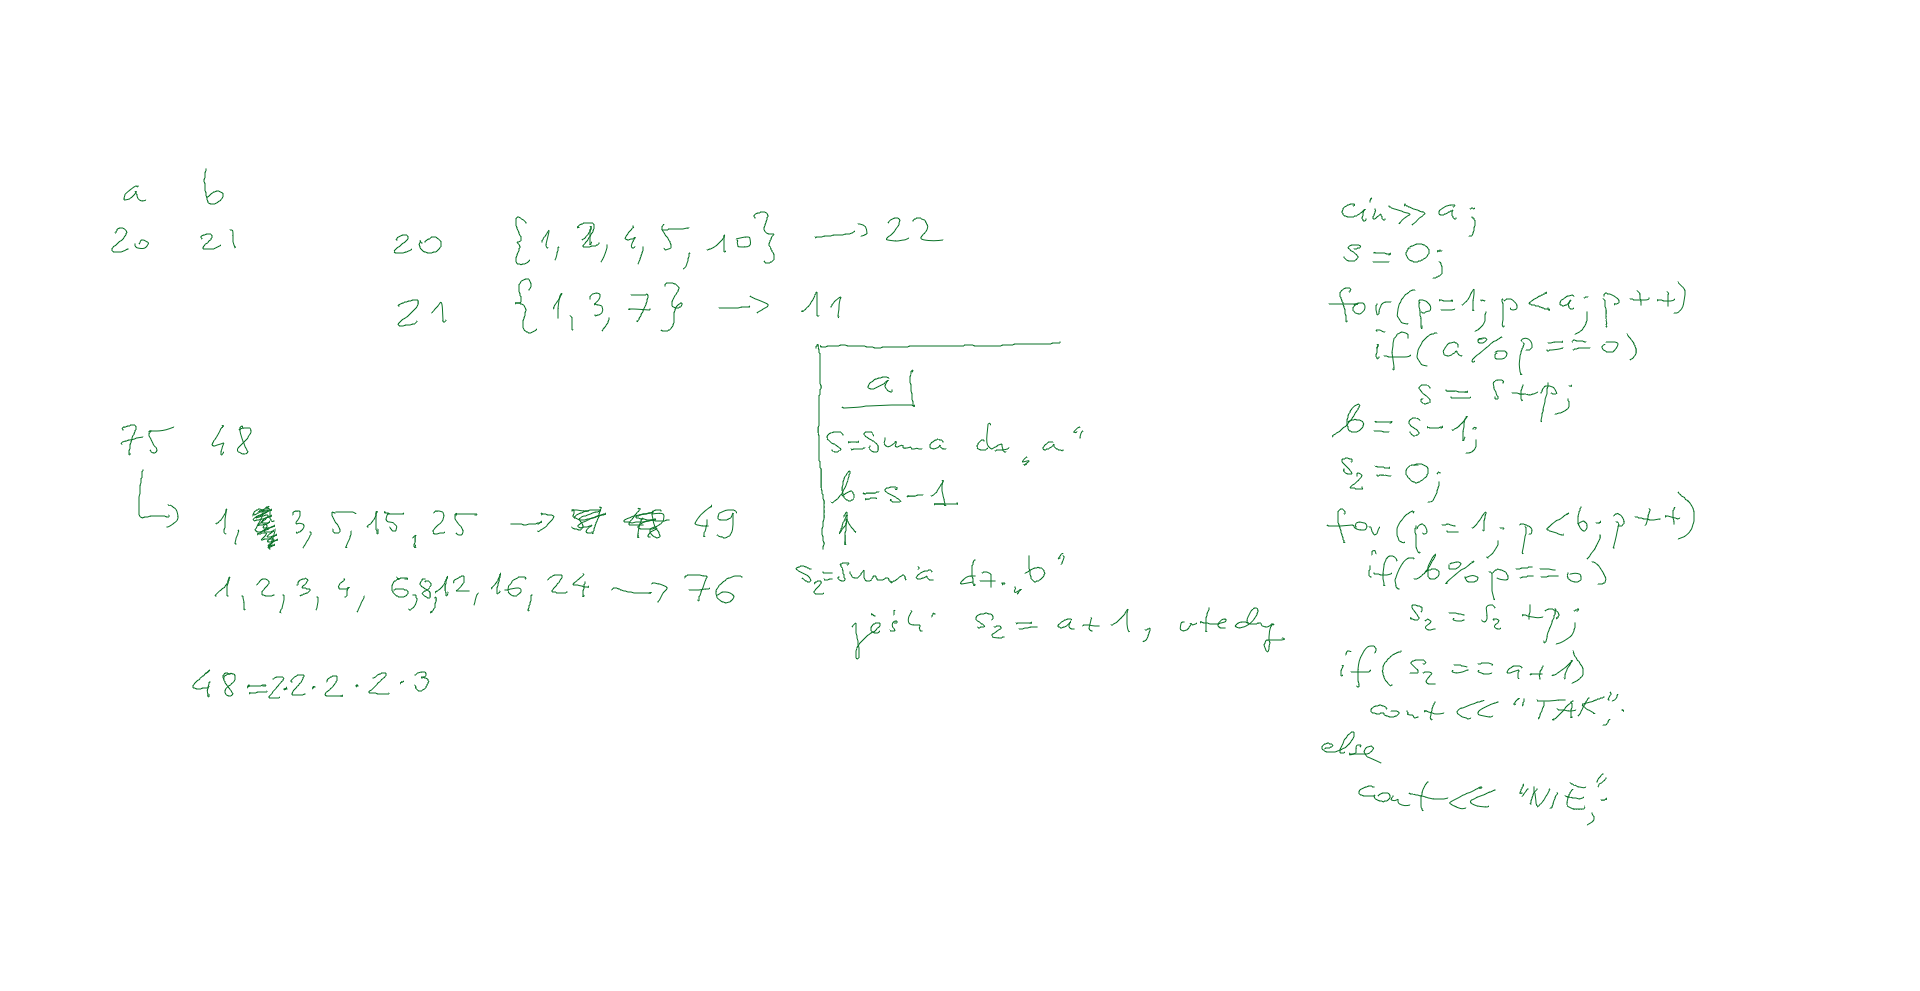 a b
20 21
20 {1, 2, 4, 5, 10} → 22
21 {1, 3, 7} → 11
75 48
1, 3, 5, 15, 25 → 49
1, 2, 3, 4, 6, 8, 12, 16, 24 → 76
48 = 2·2·2·2·3
a
s=suma dz „a“
b=s-1
s₂=suma dz. „b“
jeśli s₂ = a+1, wtedy
cin>> a;
s = 0;
for(p=1; p<a; p++)
if(a%p==0)
s = s+p;
b = s-1;
s₂ = 0;
for (p=1; p<b; p++)
if(b%p==0)
s₂ = s₂ +p;
if(s₂ == a+1)
cout << "TAK";
else
cout << "NIE";